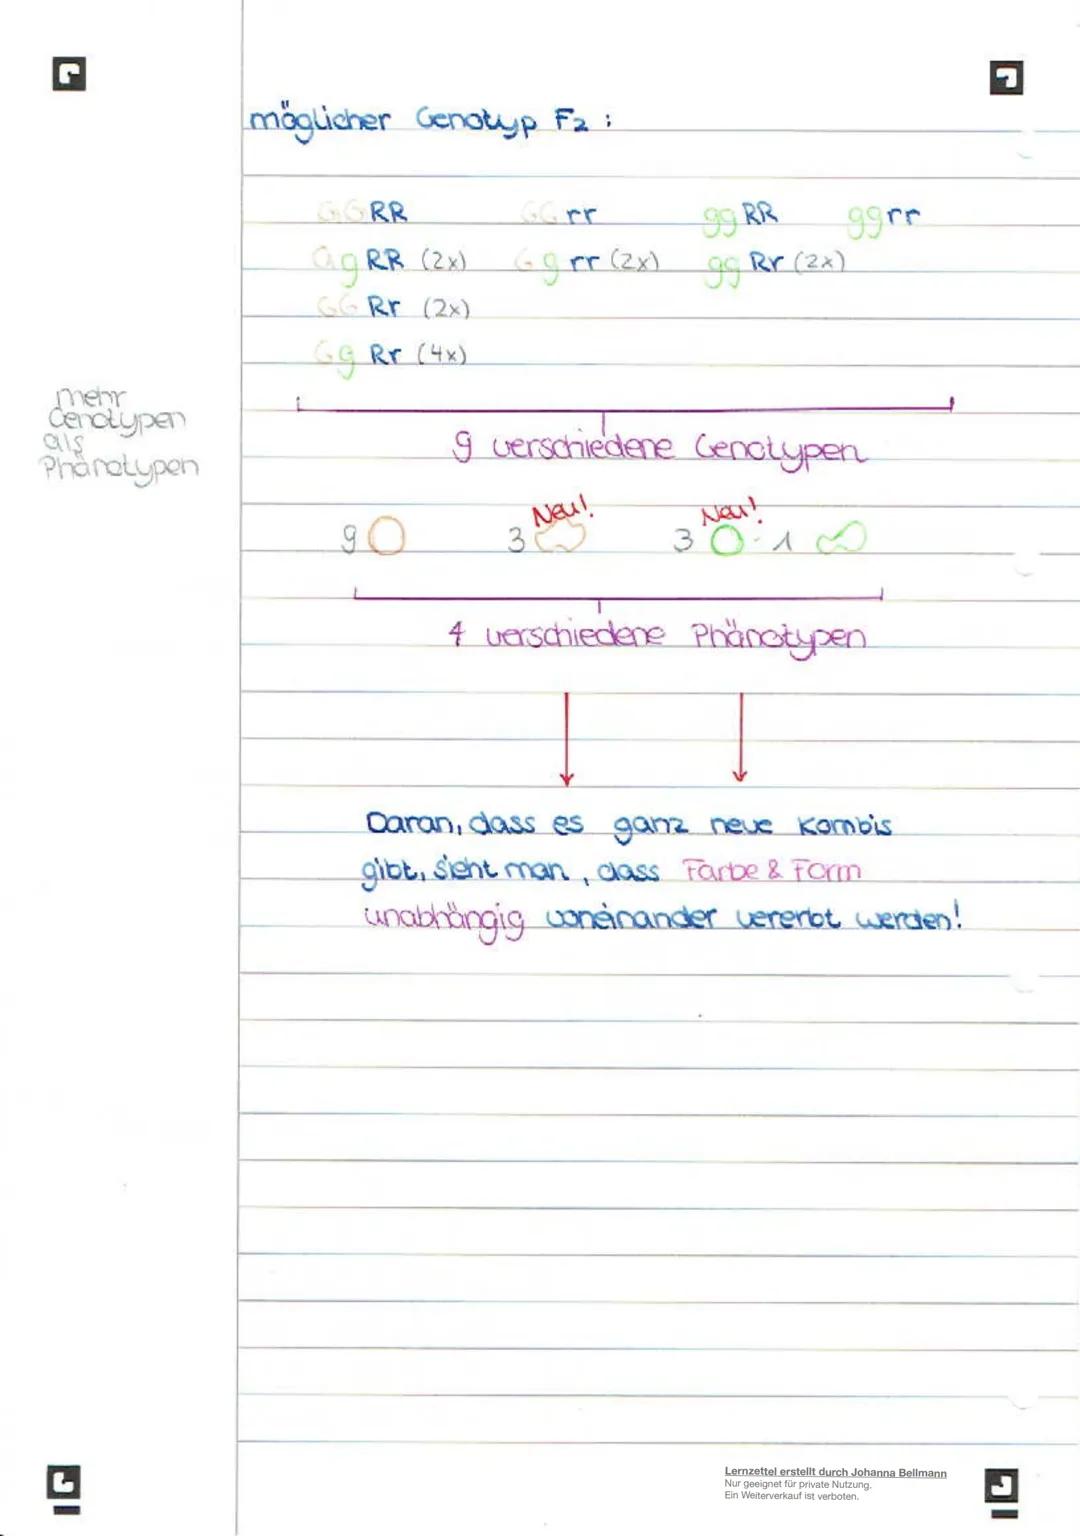 möglicher Genotyp F2:
GGRR GGrr ggRR ggrr
GgRR (2x) Ggrr (2x) ggRr (2x)
GGRr (2x)
GgRr (4x)
mehr
Genotypen
als
Phänotypen
9 verschiedene Genotypen
Neu! Neu!
9 3 3 : 1
4 verschiedene Phänotypen
Daran, dass es ganz neue Kombis
gibt, sieht man, dass Farbe & Form
unabhängig voneinander vererbt werden!
Lernzettel erstellt durch Johanna Bellmann
Nur geeignet für private Nutzung.
Ein Weiterverkauf ist verboten.